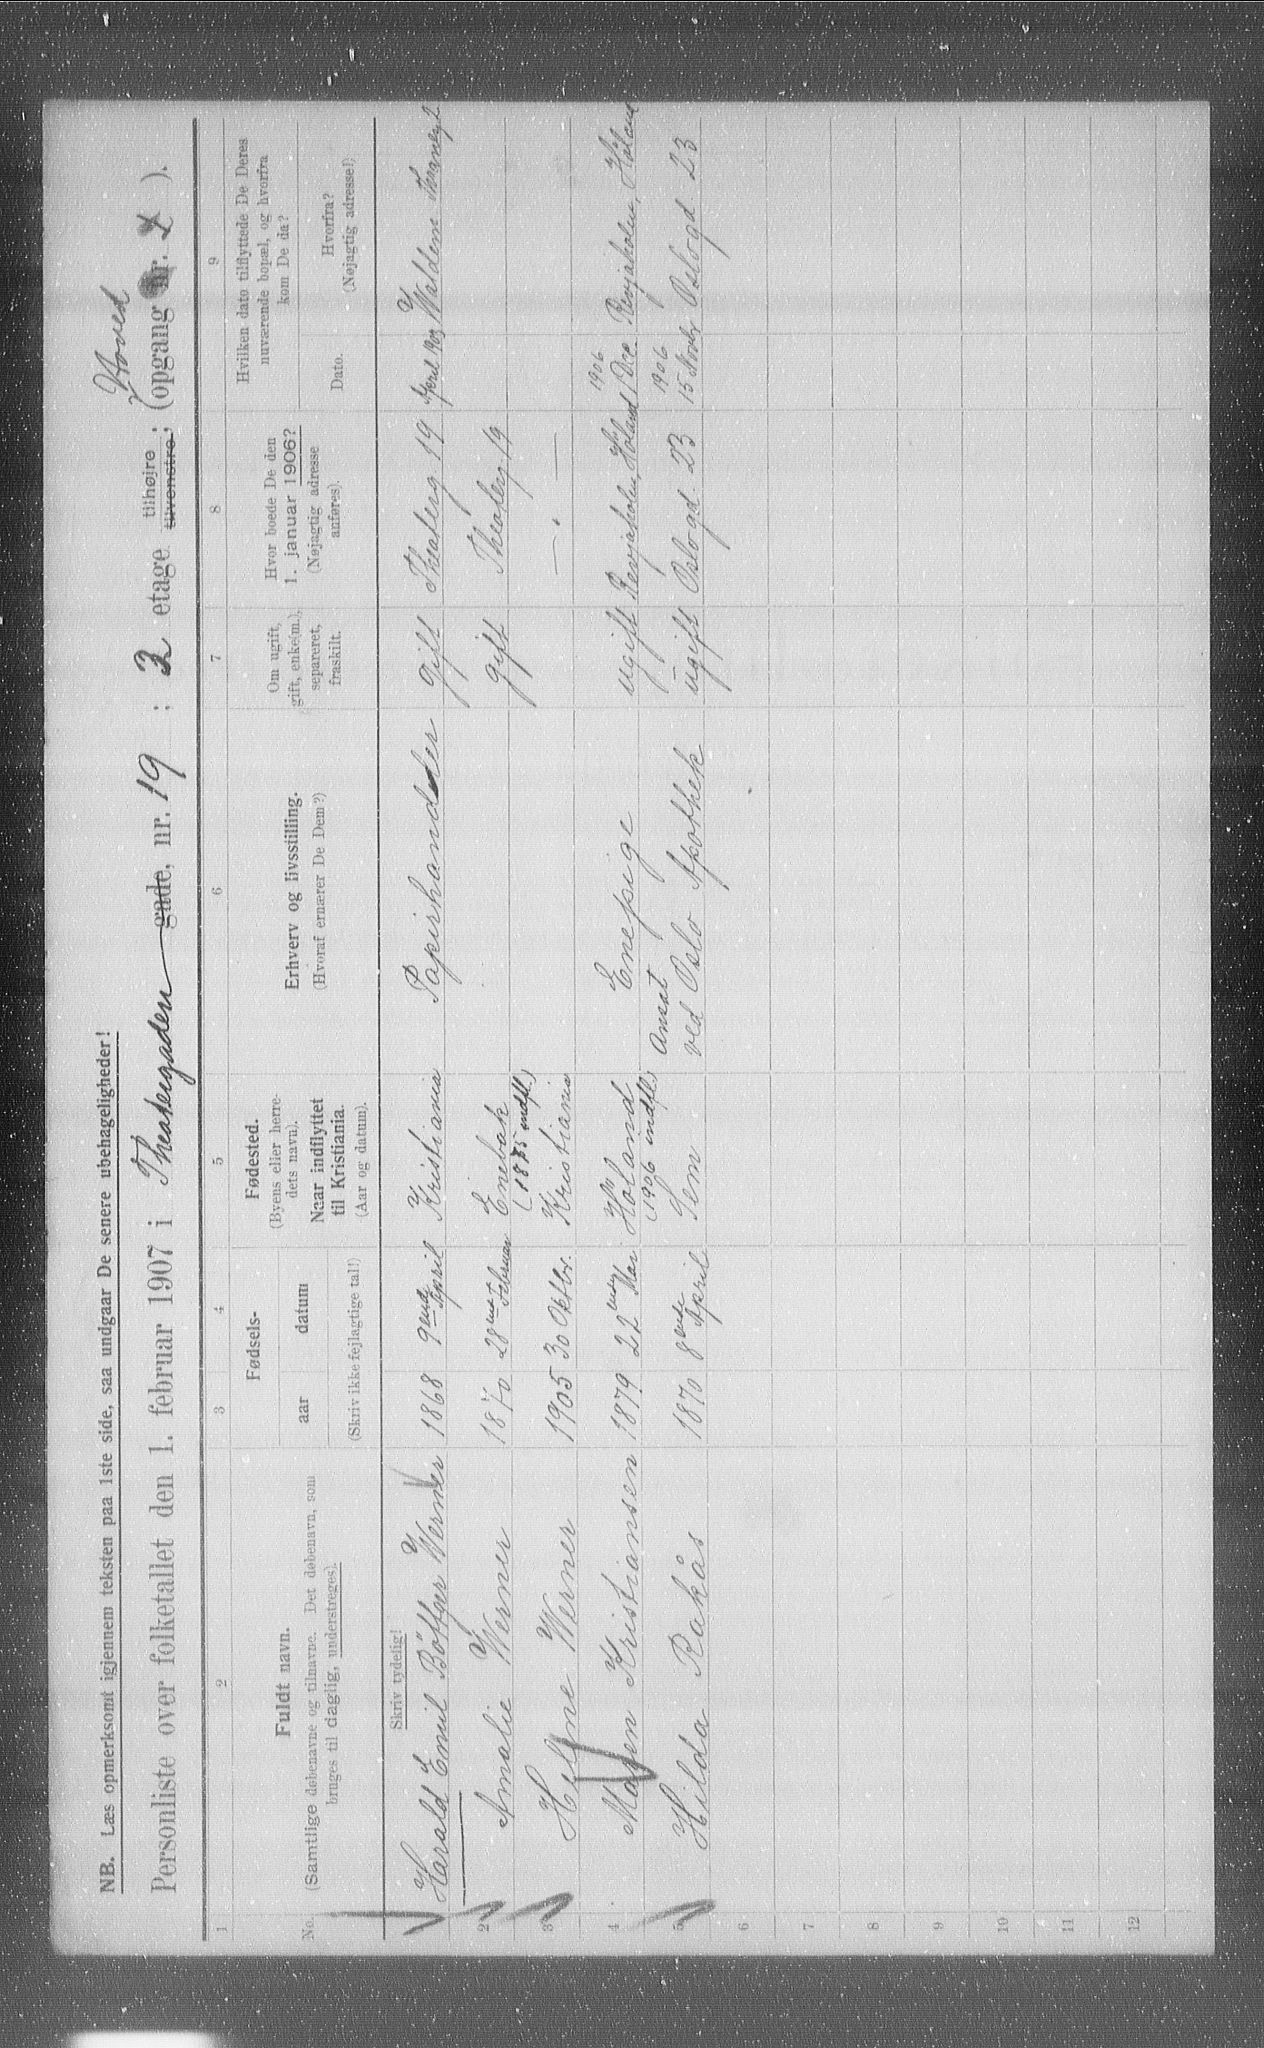 NB. Læs opmerksomt igjennem teksten paa 1ste side, saa undgaar De senere ubehageligheder!
Hoved
Personliste over folketallet den 1. februar 1907 i Theatergaden gade, nr. 19 ; 3 etage tilhøjre tilvenstre; (opgang nr. ).
1 2 3 4 5 6 7 8 9
No.
Fuldt navn.
(Samtlige døbenavne og tilnavne. Det døbenavn, som
bruges til daglig, understreges).
Fødsels-
aar datum
(Skriv ikke fejlagtige tal!)
Fødested.
(Byens eller herre-
dets navn).
Naar indflyttet
til Kristiania.
(Aar og datum).
Erhverv og livsstilling.
(Hvoraf ernærer De Dem?)
Om ugift,
gift, enke(m.),
separeret,
fraskilt.
Hvor boede De den
1. januar 1906?
(Nøjagtig adresse
anføres).
Hvilken dato tilflyttede De Deres
nuværende bopæl, og hvorfra
kom De da?
Dato.
Hvorfra?
(Nøjagtig adresse!)
Skriv tydelig!
Harald Emil Böffger Werner 1868 9ende April Kristiania Papirhandler gift Theaterg. 19 April 903 Waldem Thranesgt
2 Amalie Werner 1870 28 Februar Enebak gift Theaterg. 19
(1875 indfl.)
3 Helene Werner 1905 30 Oktbr. Kristiania — " —
1906
4 Maren Kristiansen 1879 22 Mai Höland Enepige ugift Revjaholen, Höland 1 Dec. Revjaholen, Höland
(1906 indfl.) Ansat 1906
5 Hilda Rakås 1870 8ende April Sem ved Oslo Apothek ugift Oslogd. 23 15 Novbr Oslogd 23
6
7
8
9
10
11
12